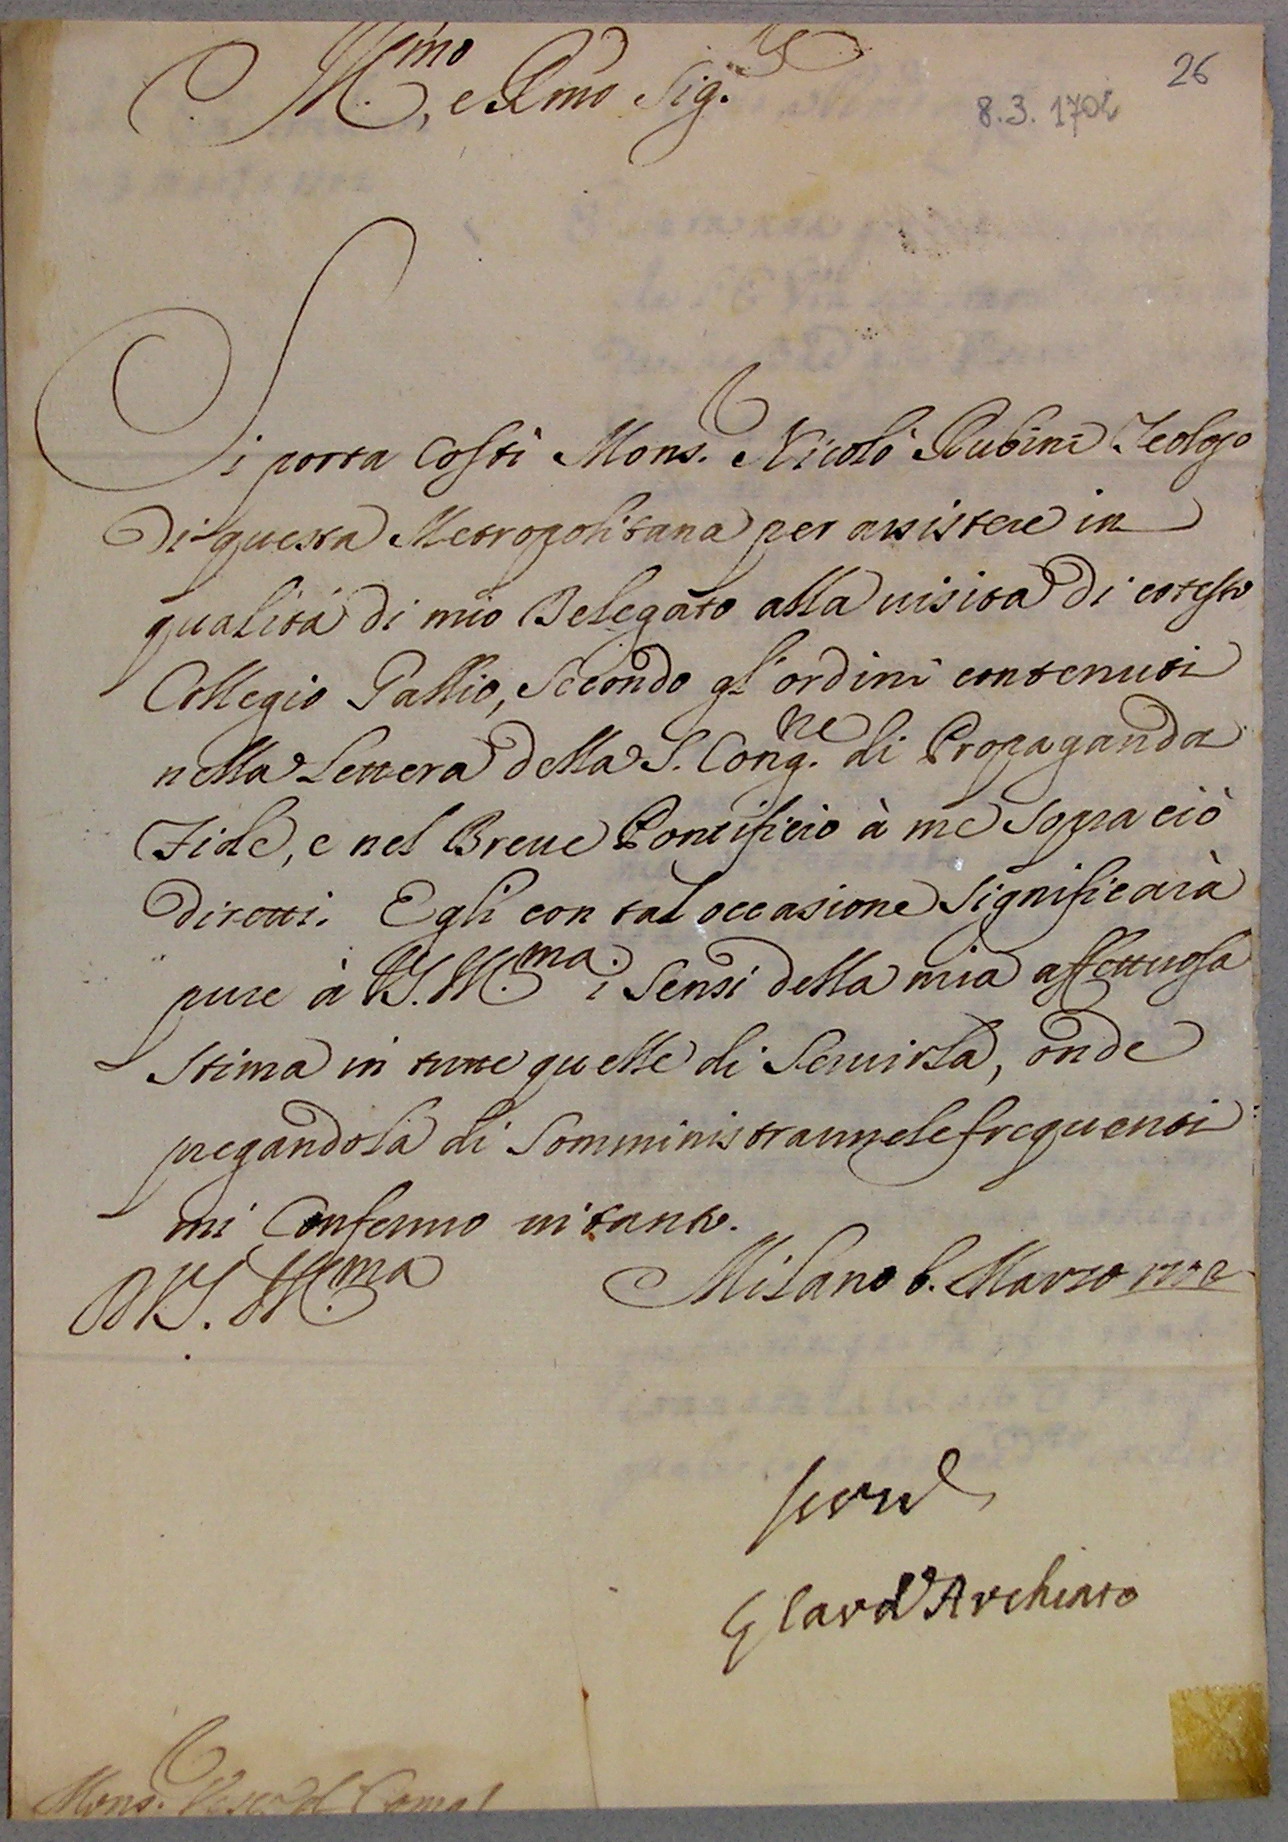 26
Ill.mo, e R.mo Sig.re
8.3.1702
Si porta costì Mons.r Nicolò Rubini Teologo
di questa Metropolitana per assistere in
qualità di mio Delegato alla uisita di cotesto
Collegio Gallio, secondo gl'ordini contenuti
nella Lettera della S. Cong.ne di Propaganda
Fide, e nel Breue Pontificio à me sopra ciò
diretti. Egli con tal occasione significarà
pure à V.S. Ill.ma i sensi della mia affettuosa
stima in tutte quelle di seruirla, onde
pregandola di somministrarmele frequenti
mi confermo in tanto.
Di V.S. Ill.ma
Milano 8. Marzo 1702
Seru.
G Card Archinto
Mons.r Vesc.o di Como